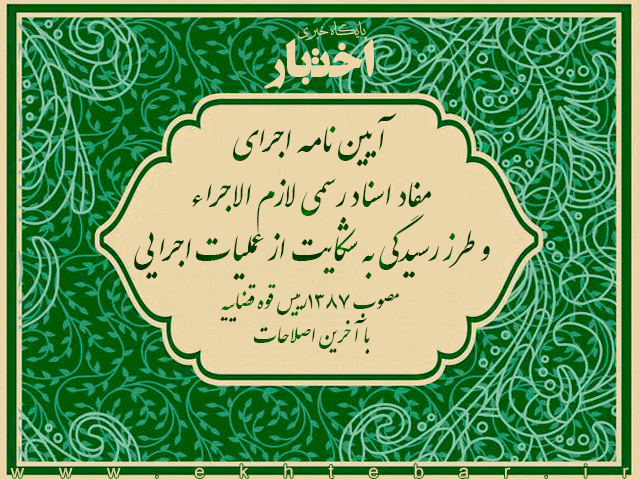 پایگاه خبری
اختبار
آیین نامه اجرای
مفاد اسناد رسمی لازم الاجراء
و طرز رسیدگی به شکایت از عملیات اجرایی
مصوب ۱۳۸۷ رییس قوه قضاییه
با آخرین اصلاحات
www.ekhtebar.ir